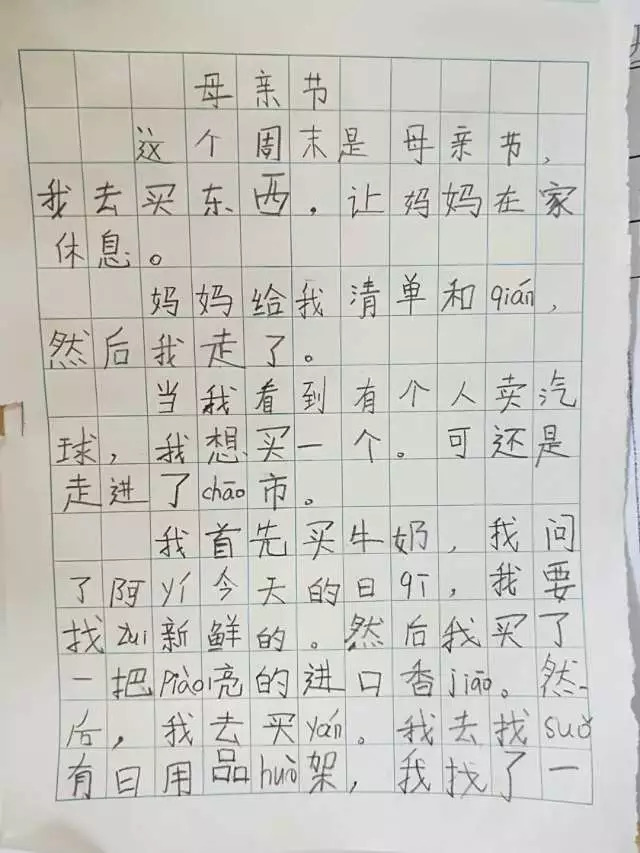 母亲节
这个周末是母亲节，
我去买东西，让妈妈在家
休息。
妈妈给我清单和qián，
然后我走了。
当我看到有个人卖汽
球，我想买一个。可还是
走进了chāo市。
我首先买牛奶，我问
了阿yí今天的日qī，我要
找zuì新鲜的。然后我买了
一把piào亮的进口香jiāo。然
后，我去买yán。我去找suǒ
有日用品huò架，我找了一